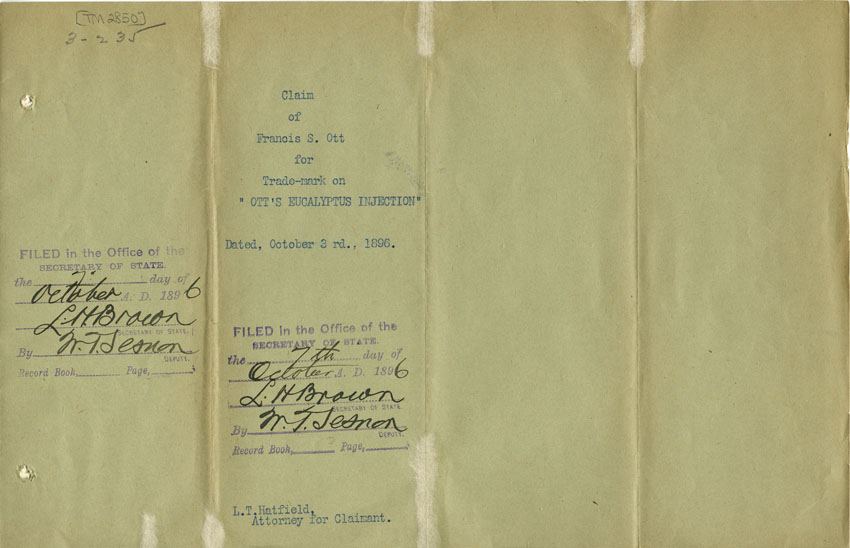 [TM 2850]
3-235
Claim
of
Francis S. Ott
for
Trade-mark on
" OTT'S EUCALYPTUS INJECTION"
Dated, October 3 rd., 1896.
FILED in the Office of the
SECRETARY OF STATE.
the 7th day of
October A. D. 1896
L. H. Brown
SECRETARY OF STATE.
By W. T. Sesnon
DEPUTY.
Record Book, Page,
FILED in the Office of the
SECRETARY OF STATE.
the 7th day of
October A. D. 1896
L. H Brown
SECRETARY OF STATE
By W. T. Sesnon
DEPUTY.
Record Book, Page,
L.T.Hatfield,
Attorney for Claimant.